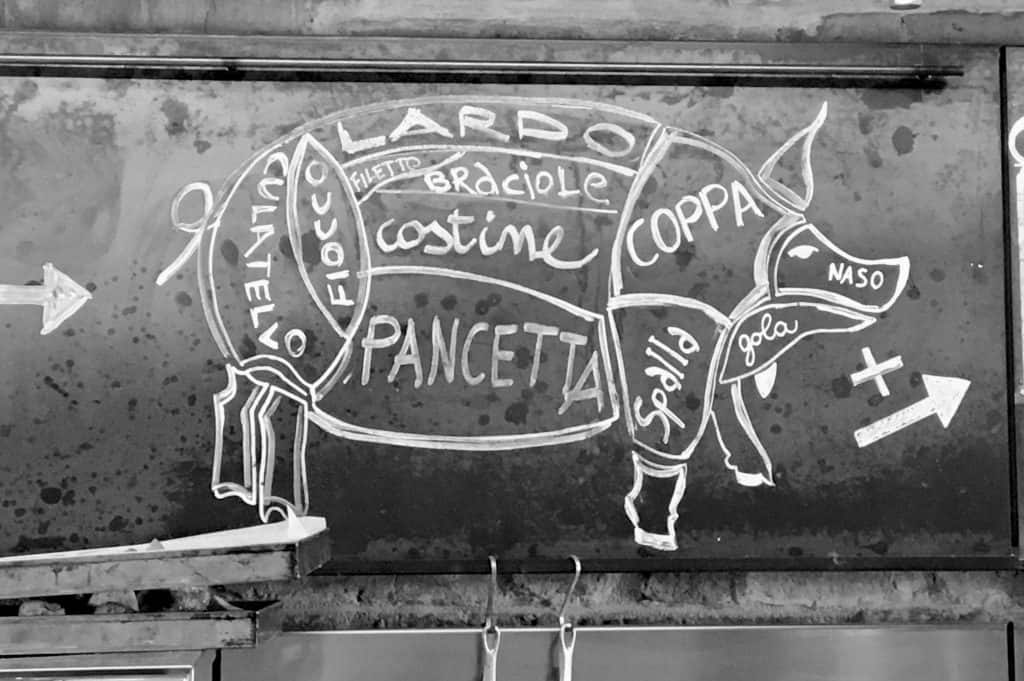 LARDO
FILETTO
BRaciOLe
costine
PANCETTA
CULATELLO
FIOCCO
COPPA
NASO
gola
Spalla
+